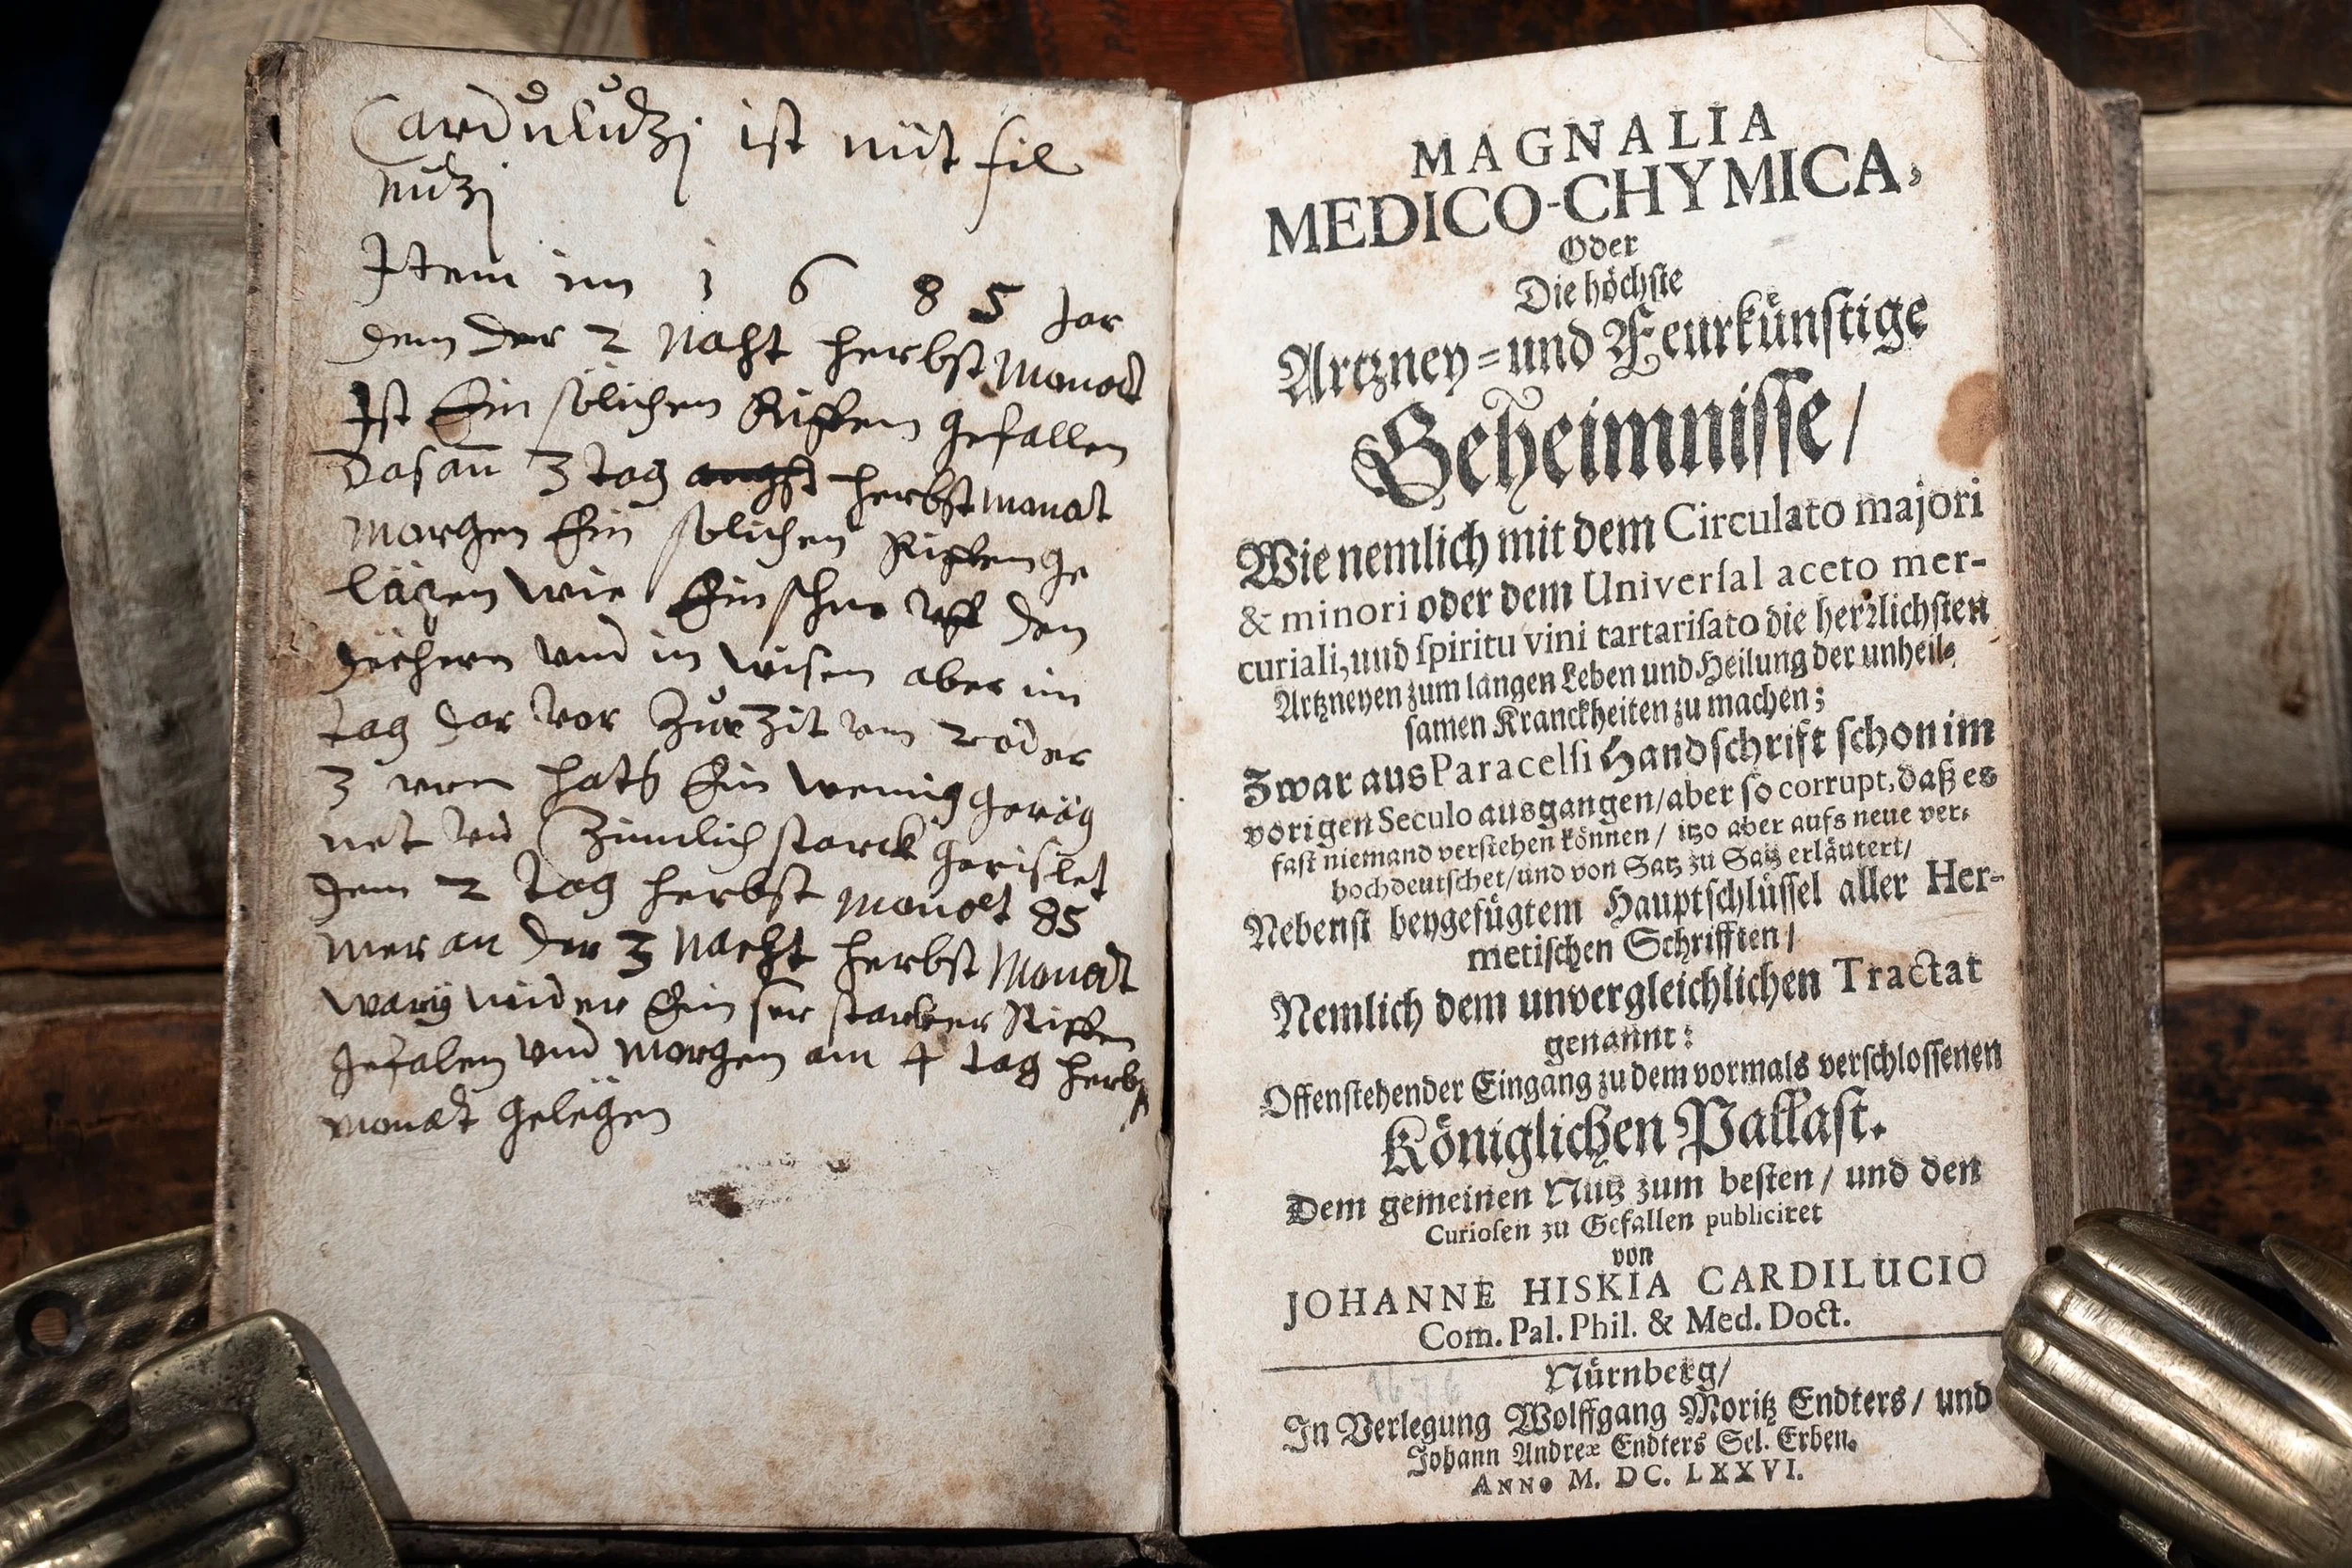 Carduludzj ist nüt fil
nudzj
Item im 1 6 8 5 Jar
dem der 2 Naht herbst Monadt
Ist Ein sölichen Riffen gefallen
das an 3 tag herbst monat
morgen Ein solichen Riffen ge
lägen wie Ein schne uff den
dächern und in wisen aber im
tag dar vor Zur Zit um 2 oder
3 vren hats Ein wenig geräg
net und Zimlich starck gerislet
dem 2 tag herbst monat 85
mer an der 3 Nacht herbst Monadt
wider Ein ser starker Riffen
gefalen und morgen am 4 tag herbst
monadt gelägen
MAGNALIA
MEDICO-CHYMICA,
Oder
Die höchste
Artzney-und Feurkünstige
Geheimnisse/
Wie nemlich mit dem Circulato majori
& minori oder dem Univerſal aceto mer-
curiali, und ſpiritu vini tartariſato die herꝛlichſten
Artzneyen zum langen Leben und Heilung der unheil-
ſamen Kranckheiten zu machen;
Zwar aus Paracelſi Handſchrift ſchon im
vorigen Seculo ausgangen/aber ſo corrupt, daß es
faſt niemand verſtehen können/ itzo aber aufs neue ver-
hochdeutſchet/und von Satz zu Satz erläutert/
Nebenſt beygefügtem Hauptſchlüſſel aller Her-
metiſchen Schrifften/
Nemlich dem unvergleichlichen Tractat
genannt:
Offenſtehender Eingang zu dem vormals verſchloſſenen
Königlichen Pallaſt.
Dem gemeinen Nutz zum beſten/ und den
Curioſen zu Gefallen publiciret
von
JOHANNE HISKIA CARDILUCIO
Com. Pal. Phil. & Med. Doct.
1676
Nürnberg/
In Verlegung Wolffgang Moritz Endters/ und
Johann Andreæ Endters Sel. Erben.
ANNO M. DC. LXXVI.